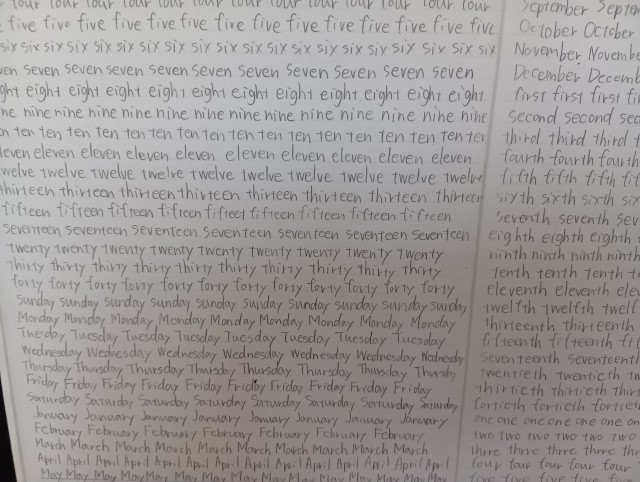 four four four four four four four four four four
five five five five five five five five five five five
six six six six six six six six six six six six six six six six
seven seven seven seven seven seven seven seven seven
eight eight eight eight eight eight eight eight eight eight
nine nine nine nine nine nine nine nine nine nine nine
ten ten ten ten ten ten ten ten ten ten ten ten ten ten
eleven eleven eleven eleven eleven eleven eleven eleven
twelve twelve twelve twelve twelve twelve twelve twelve twelve
thirteen thirteen thirteen thirteen thirteen thirteen thirteen thirteen
fifteen fifteen fifteen fifteen fifteet fifteen fifteen fifteen fifteen
seventeen seventeen seventeen seventeen seventeen seventeen seventeen
twenty twenty twenty twenty twenty twenty twenty twenty twenty
thirty thirty thirty thirty thirty thirty thirty thirty thirty thirty
forty forty forty forty forty forty forty forty forty forty forty
Sunday sunday sunday sunday sunday sunday sunday sunday sunday sunday
Monday Monday Monday Monday Monday Monday Monday Monday Monday
Tuesday Tuesday Tuesday Tuesday Tuesday Tuesday Tuesday Tuesday
Wednesday Wednesday Wednesday Wednesday Wednesday Wednesday Wednesday
Thursday Thursday Thursday Thursday Thursday Thursday Thursday Thursday
Friday Friday Friday Friday Friday Friday Friday Friday Friday Friday
Saturday Saturday Saturday Saturday Saturday Saturday Saturday Saturday
January January January January January January January January
February February February February February February February
March March March March March March March March March March
April April April April April April April April April April April
May May May May May May May May May May May May
September Septe
October October
November Novembe
December Decemb
first first first fi
second second sec
third third third t
fourth fourth fourth
fifth fifth fifth fif
sixth sixth sixth six
seventh seventh sev
eighth eighth eighth
ninth ninth ninth ninth
tenth tenth tenth t
eleventh eleventh elev
twelfth twelfth twelf
thirteenth thirteenth
fifteenth fifteenth fif
seventeenth seventeent
twentieth twentieth tw
thirtieth thirtieth thirt
fortieth fortieth fortiet
one one one one one on
two two two two two two
three three three three thr
four four four four four
five five five five five